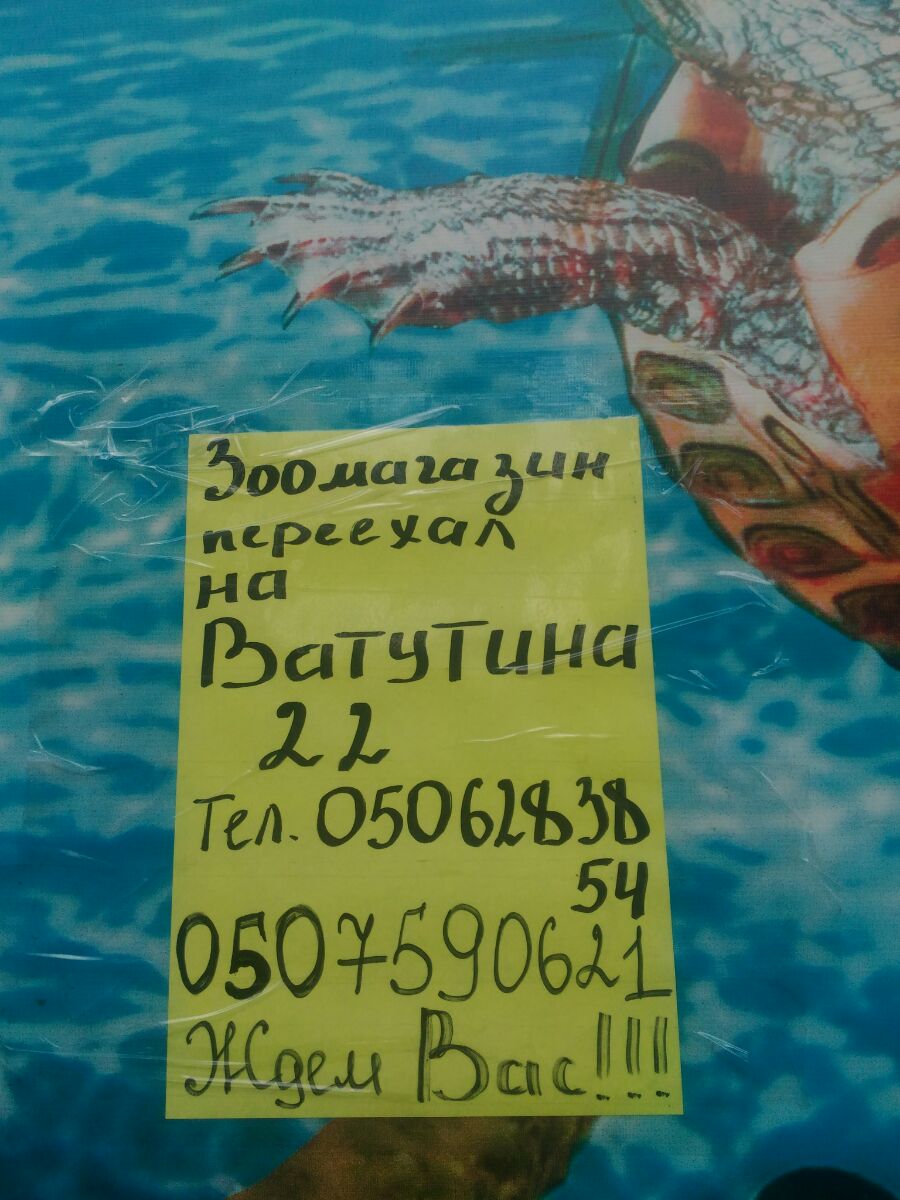 Зоомагазин
переехал
на
Ватутина
22
Тел. 05062838
54
0507590621
Ждем Вас!!!